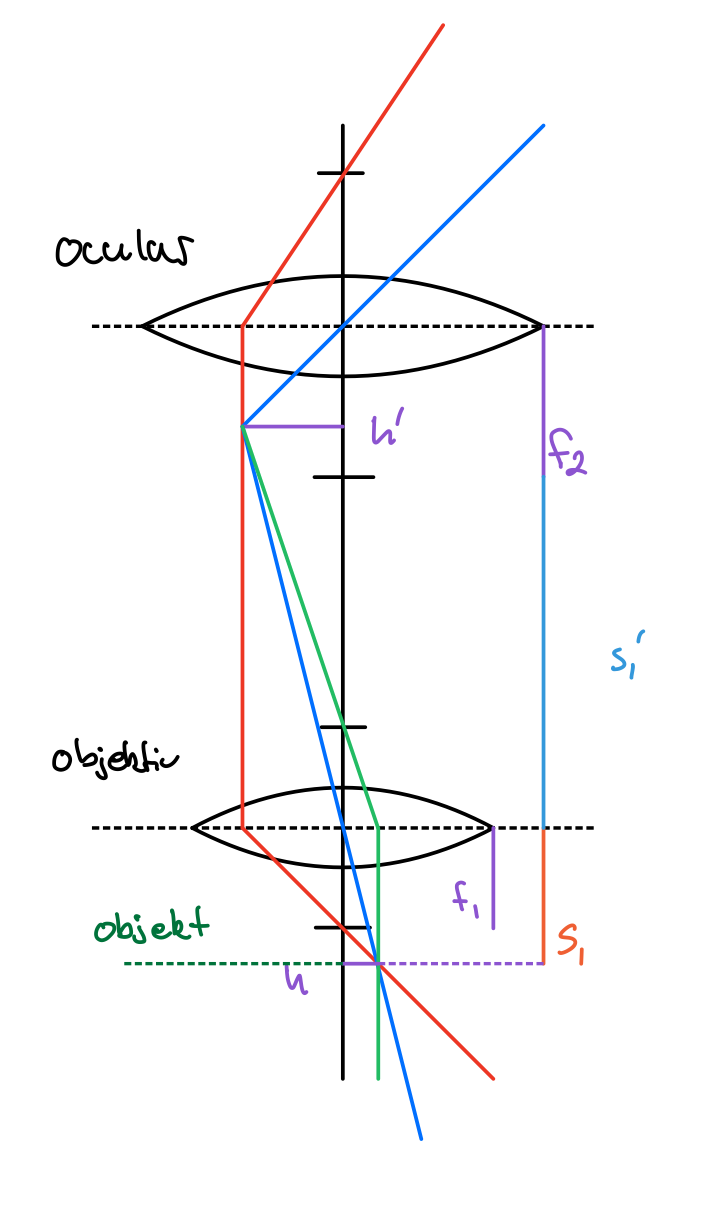 ocular
h'
f₂
s₁'
objektiv
f₁
objekt
S₁
h